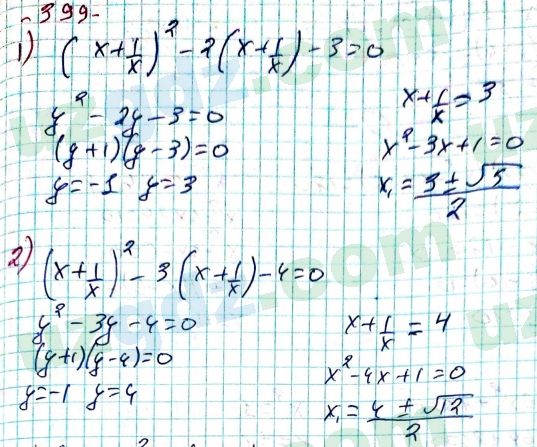 -399-
1) (x+1/x)² - 2(x+1/x) - 3 = 0
y² - 2y - 3 = 0
(y+1)(y-3) = 0
y = -1 y = 3
x+1/x = 3
x² - 3x + 1 = 0
x₁ = (3 ± √5)/2
2) (x+1/x)² - 3(x+1/x) - 4 = 0
y² - 3y - 4 = 0
(y+1)(y-4) = 0
y = -1 y = 4
x+1/x = 4
x² - 4x + 1 = 0
x₁ = (4 ± √12)/2